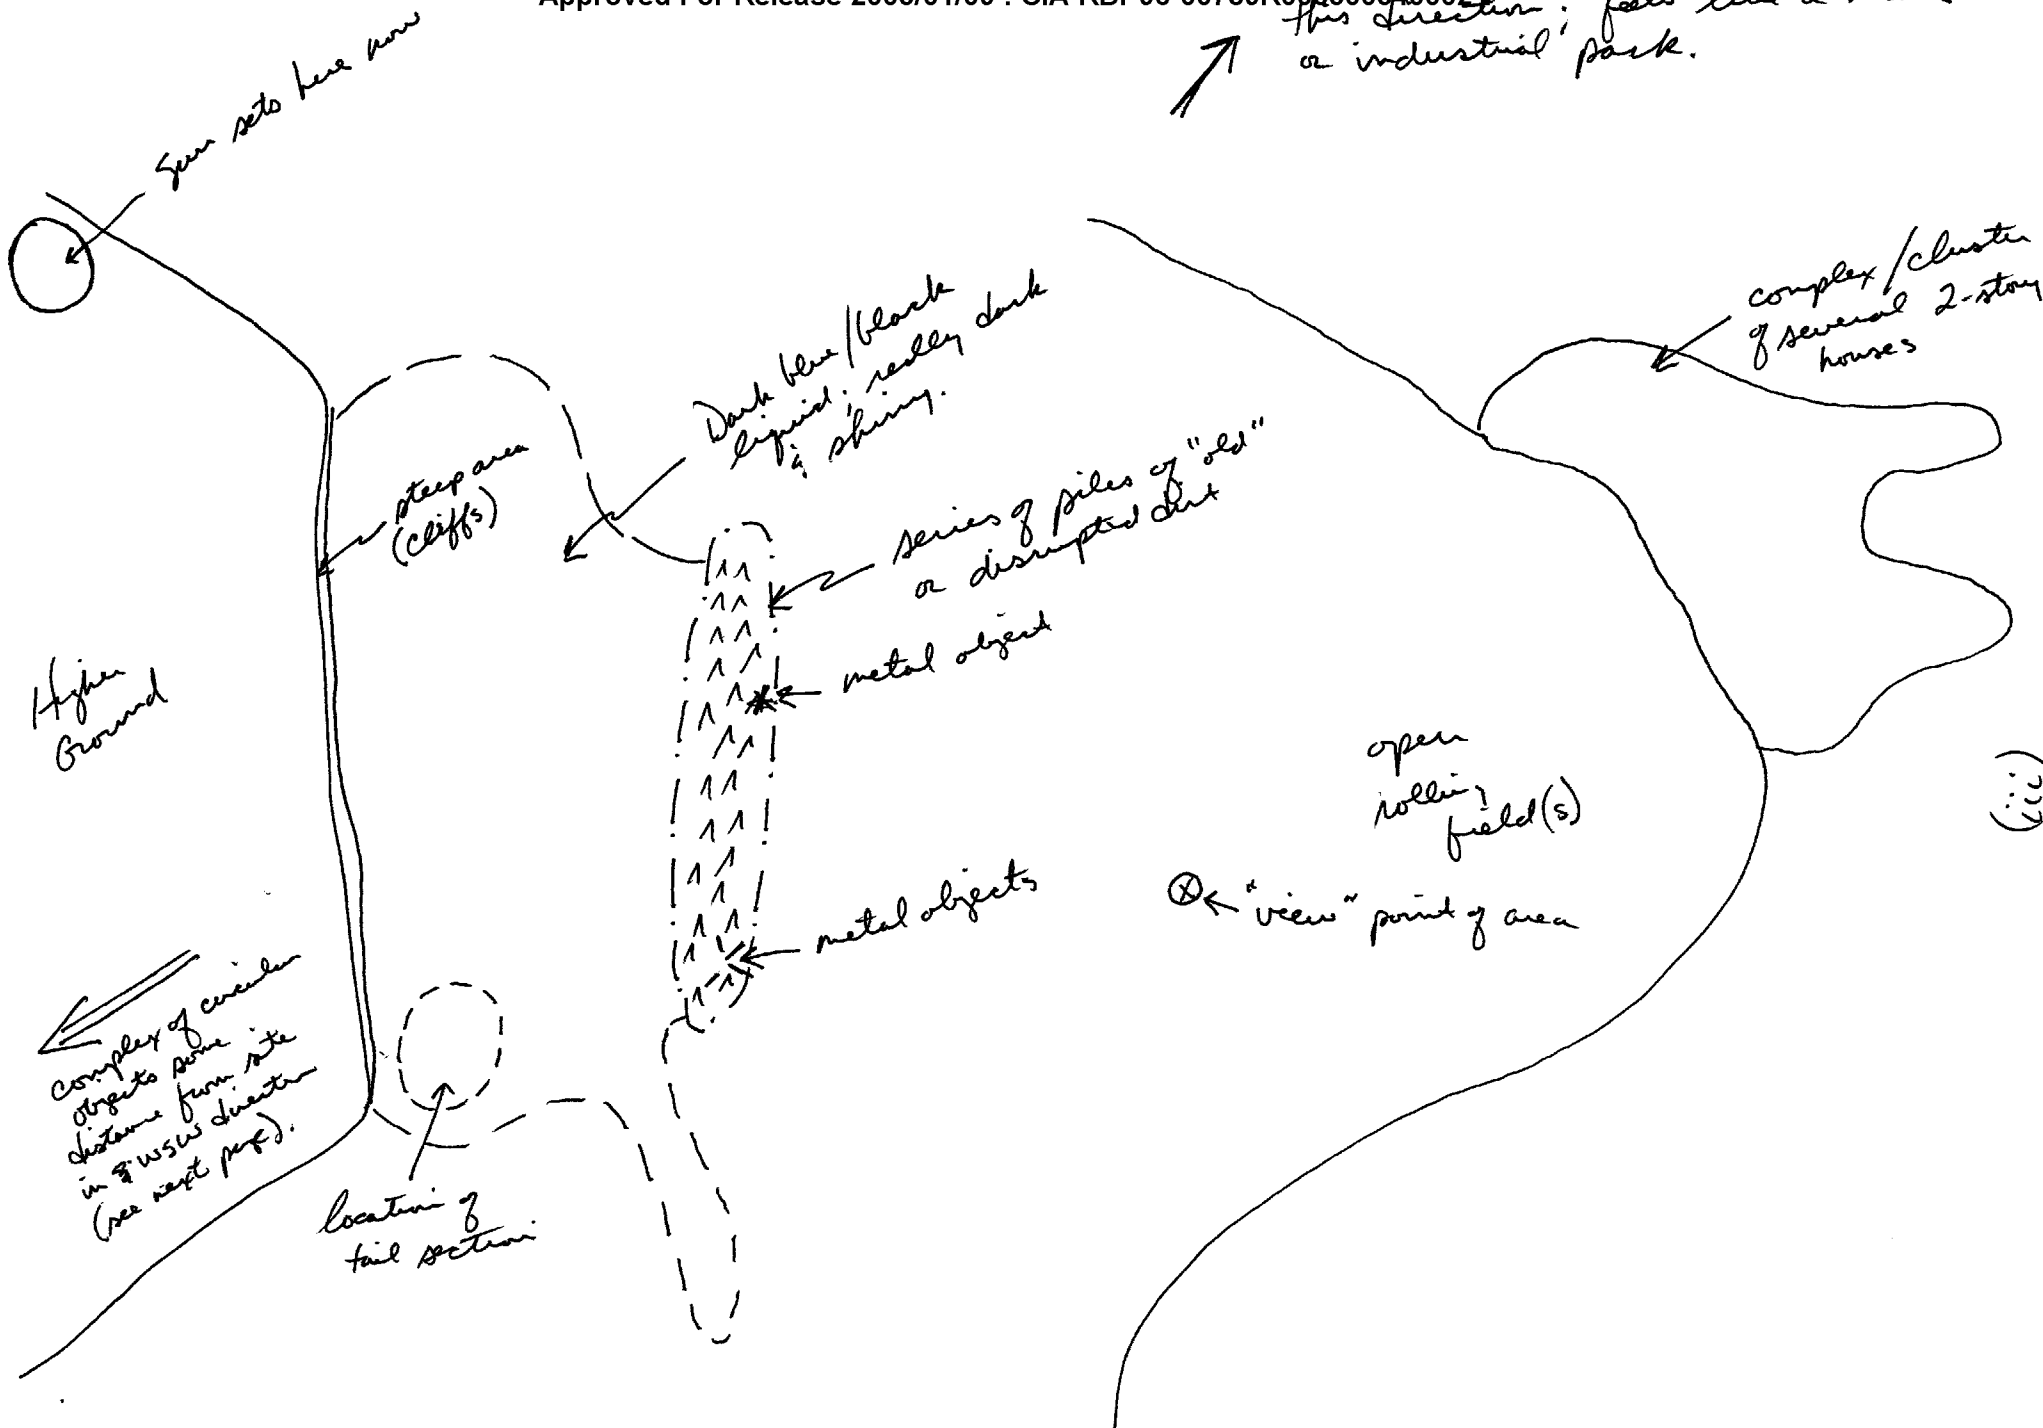 Approved For Release
this direction; feels like a
or industrial park.
Sun sets here now
complex/cluster
of several 2-story
houses
Dark blue/black
liquid; really dark
& shiny.
steep area
(cliffs)
series of piles of "old"
or disrupted dirt
metal object
Higher
Ground
open
rolling
field(s)
(iii)
"view" point of area
metal objects
complex of circular
objects some
distance from site
in WSW direction
(see next page).
location of
tail section